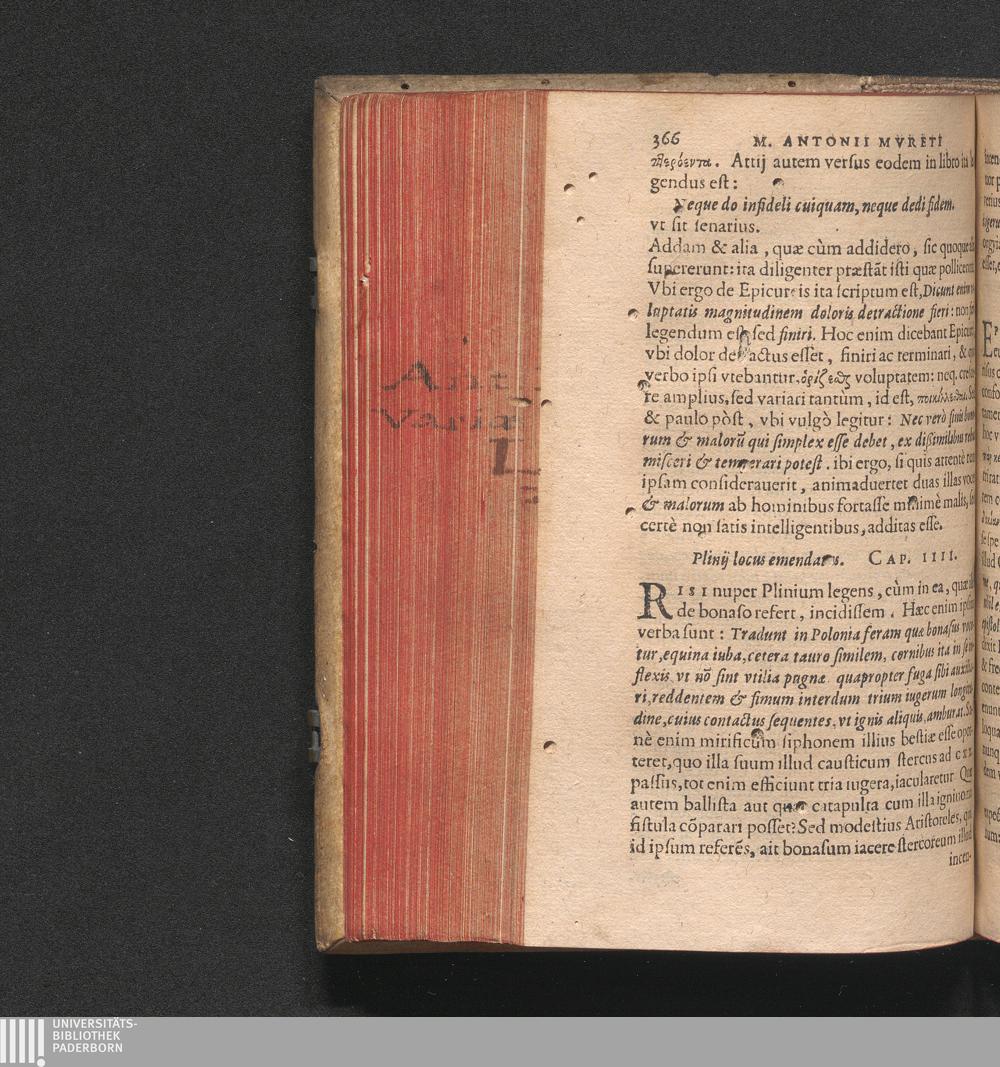 Ant
Varia
L
366 M. ANTONII MVRETI
πτερόεντα. Attij autem versus eodem in libro
gendus est:
Neque do infideli cuiquam, neque dedi fidem.
vt sit senarius.
Addam & alia, quæ cùm addidero, sic quoque
supererunt: ita diligenter præstāt isti quæ
Vbi ergo de Epicureis ita scriptum est, Dicunt enim
luptatis magnitudinem doloris detractione fieri: non
legendum est, sed finiri. Hoc enim dicebant
vbi dolor detractus esset, finiri ac terminari, &
verbo ipsi vtebantur. voluptatem: neq.
re amplius, sed variari tantùm, id est,
& paulo pòst, vbi vulgò legitur: Nec verò finis
rum & malorū qui simplex esse debet, ex dißimilibus
misceri & temperari potest. ibi ergo, si quis attentè
ipsam considerauerit, animaduertet duas illas
& malorum ab hominibus fortasse minimè malis,
certè non satis intelligentibus, additas esse.
Plinij locus emendatus. CAP. IIII.
RISI nuper Plinium legens, cùm in ea, quæ
de bonaso refert, incidissem. Hæc enim
verba sunt: Tradunt in Polonia feram quæ bonasus
tur, equina iuba, cetera tauro similem, cornibus ita in se
flexis, vt nō sint vtilia pugnæ. quapropter fuga sibi
ri, reddentem & fimum interdum trium iugerum
dine, cuius contactus sequentes, vt ignis aliquis, amburat.
nè enim mirificum siphonem illius bestiæ esse
teret, quo illa suum illud causticum stercus ad
passus, tot enim efficiunt tria iugera, iacularetur. Quæ
autem ballista aut quæ catapulta cum illa
fistula cōparari posset? Sed modestius Aristoteles,
id ipsum referēs, ait bonasum iacere stercoreum
incen-
UNIVERSITÄTS-
BIBLIOTHEK
PADERBORN